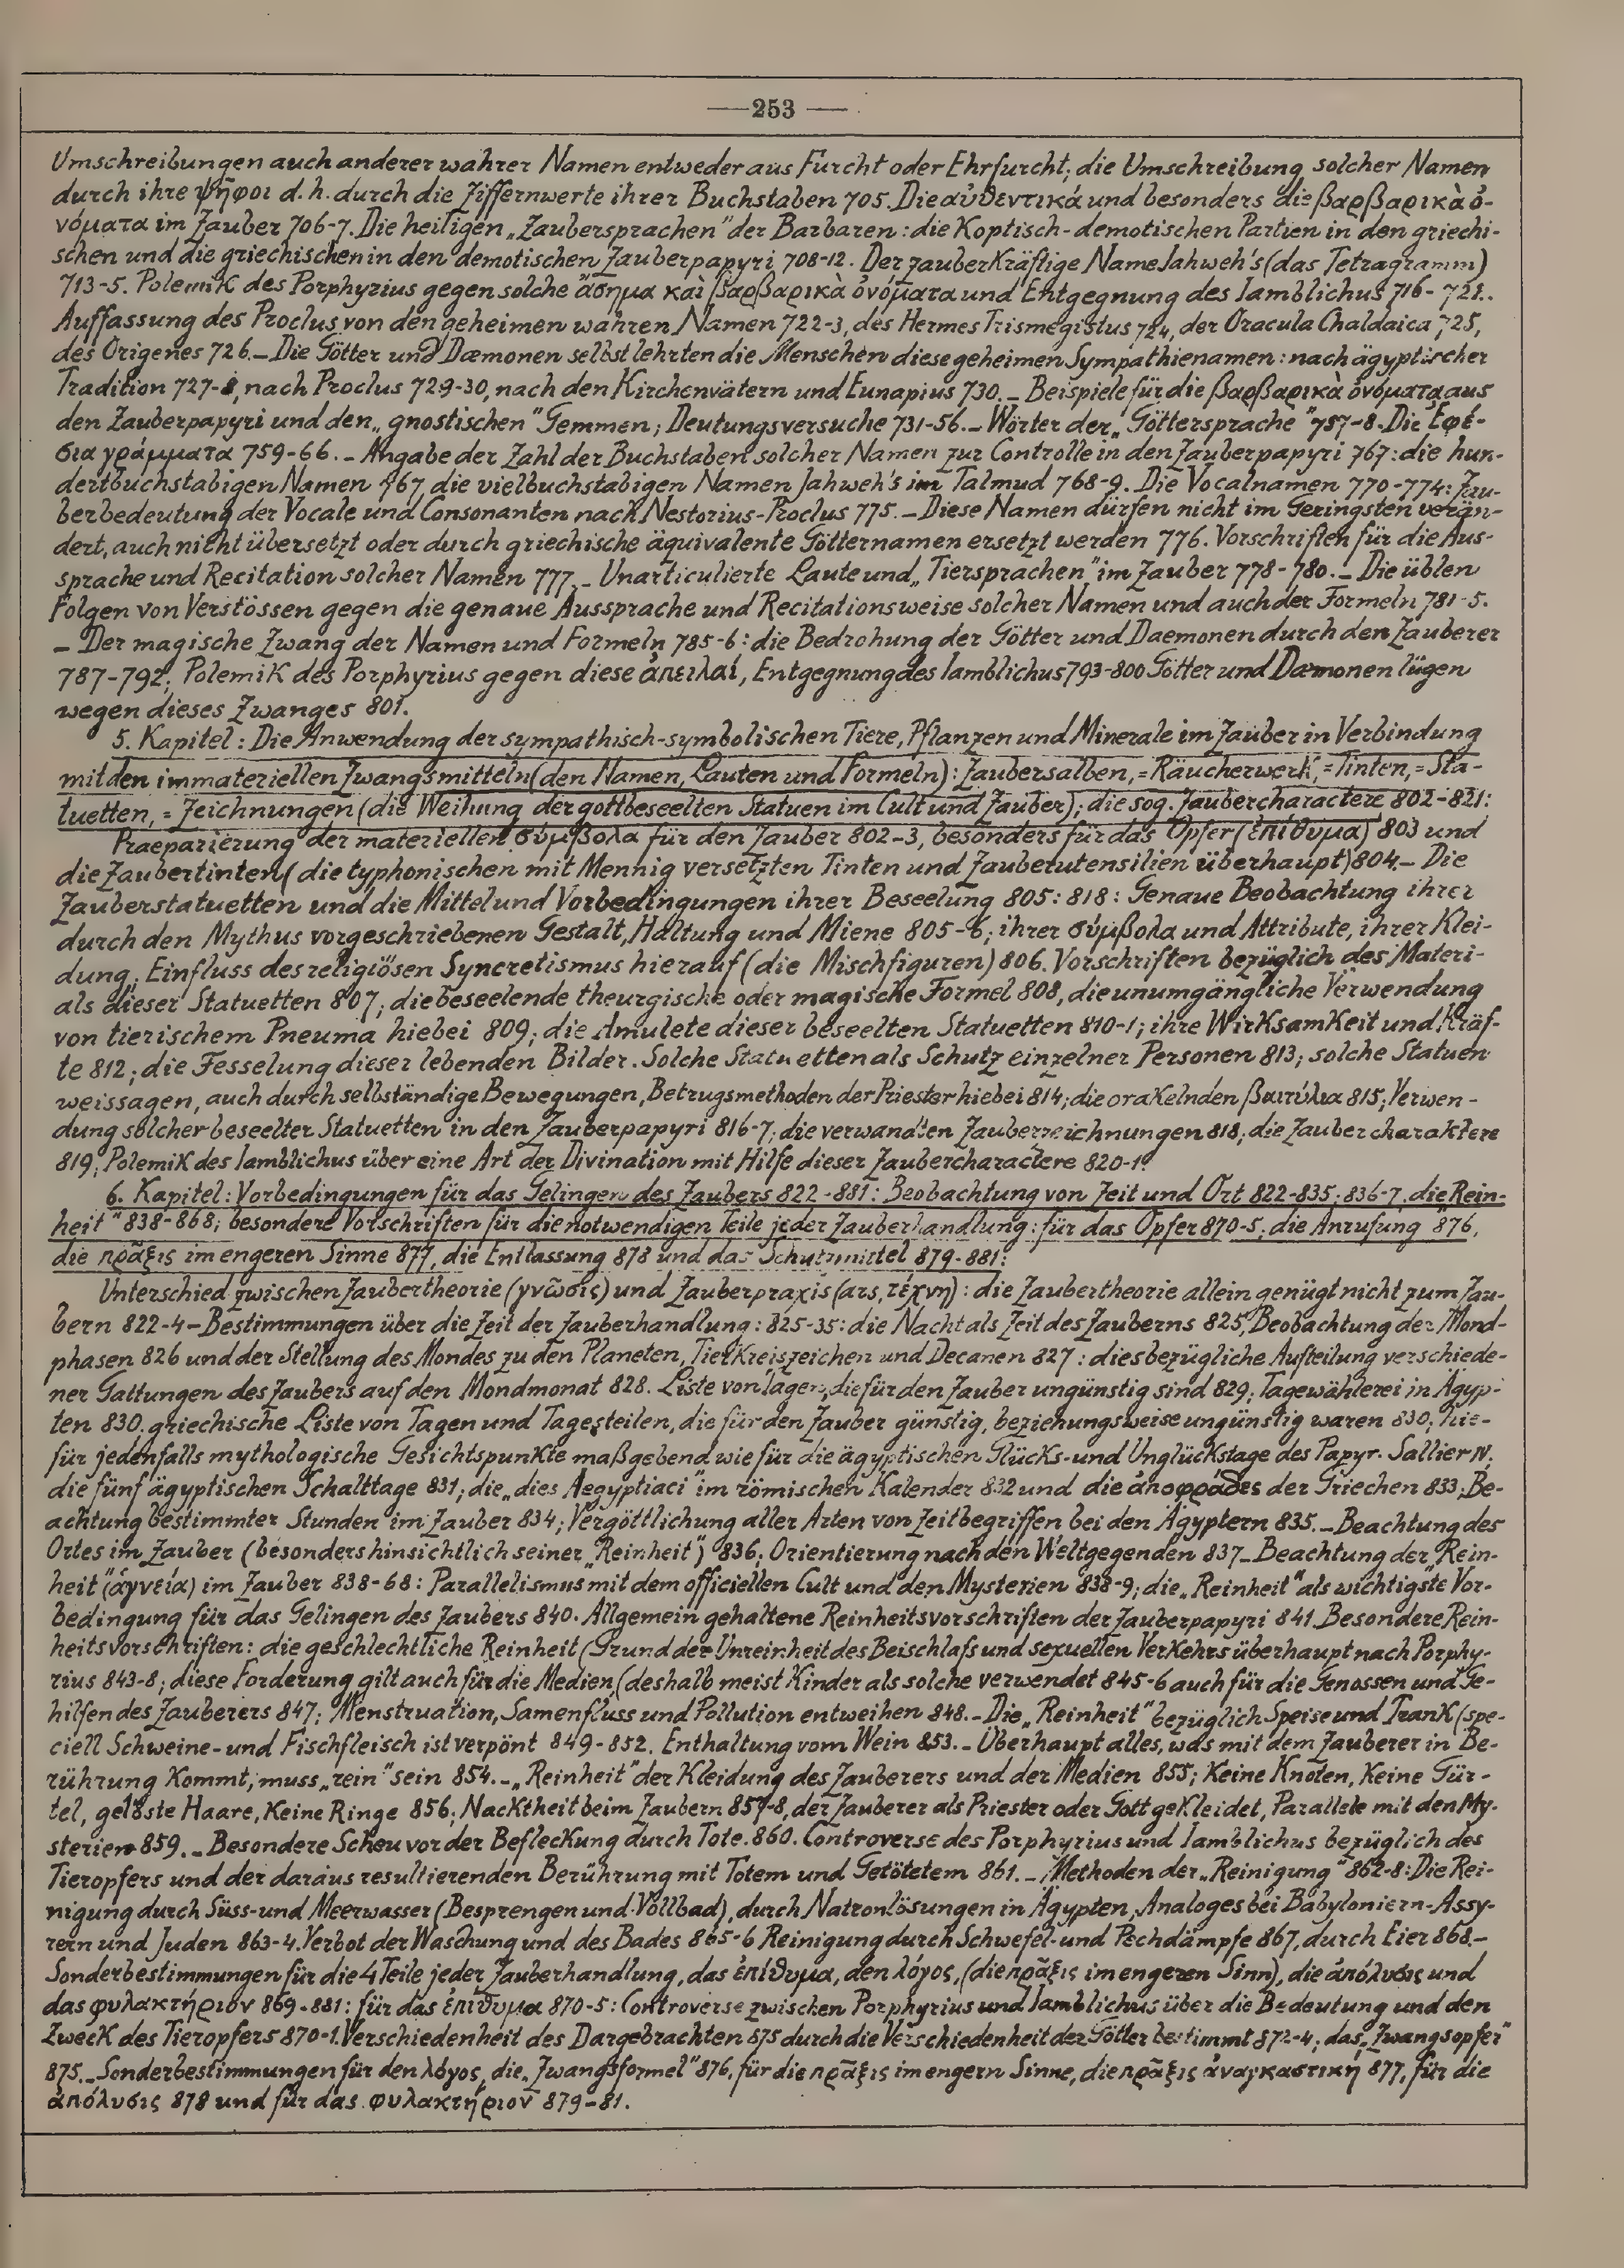 —253—
Umschreibungen auch anderer wahrer Namen entweder aus Furcht oder Ehrfurcht; die Umschreibung solcher Namen
durch ihre ψῆφοι d.h. durch die Ziffernwerte ihrer Buchstaben 705. Die αὐθεντικά und besonders die βαρβαρικὰ ὀ-
νόματα im Zauber 706-7. Die heiligen „Zaubersprachen" der Barbaren: die Koptisch-demotischen Partien in den griechi-
schen und die griechischen in den demotischen Zauberpapyri 708-12. Der zauberkräftige Name Jahweh's (das Tetragramm)
713-5. Polemik des Porphyrius gegen solche ἄσημα καὶ βαρβαρικὰ ὀνόματα und Entgegnung des Iamblichus 716-721.
Auffassung des Proclus von den geheimen wahren Namen 722-3, des Hermes Trismegistus 724, der Oracula Chaldaica 725,
des Origenes 726. – Die Götter und Dæmonen selbst lehrten die Menschen diese geheimen Sympathienamen: nach ägyptischer
Tradition 727-8, nach Proclus 729-30, nach den Kirchenvätern und Eunapius 730. – Beispiele für die βαρβαρικὰ ὀνόματα aus
den Zauberpapyri und den „gnostischen" Gemmen; Deutungsversuche 731-56. – Wörter der „Göttersprache" 757-8. Die Ἐφέ-
σια γράμματα 759-66. – Angabe der Zahl der Buchstaben solcher Namen zur Controlle in den Zauberpapyri 767: die hun-
dertbuchstabigen Namen 767, die vielbuchstabigen Namen Jahweh's im Talmud 768-9. Die Vocalnamen 770-774: Zau-
berbedeutung der Vocale und Consonanten nach Nestorius-Proclus 775. – Diese Namen dürfen nicht im Geringsten verän-
dert, auch nicht übersetzt oder durch griechische äquivalente Götternamen ersetzt werden 776. Vorschriften für die Aus-
sprache und Recitation solcher Namen 777. – Unarticulierte Laute und „Tiersprachen" im Zauber 778-780. – Die üblen
Folgen von Verstössen gegen die genaue Aussprache und Recitationsweise solcher Namen und auch der Formeln 781-5.
– Der magische Zwang der Namen und Formeln 785-6: die Bedrohung der Götter und Daemonen durch den Zauberer
787-792; Polemik des Porphyrius gegen diese ἀπειλαί, Entgegnung des Iamblichus 793-800 Götter und Dæmonen lügen
wegen dieses Zwanges 801.
5. Kapitel: Die Anwendung der sympathisch-symbolischen Tiere, Pflanzen und Minerale im Zauber in Verbindung
mit den immateriellen Zwangsmitteln (den Namen, Lauten und Formeln): Zaubersalben, =Räucherwerk, =Tinten, =Sta-
tuetten, =Zeichnungen (die Weihung der gottbeseelten Statuen im Cult und Zauber); die sog. Zaubercharactere 802-821:
Praeparierung der materiellen σύμβολα für den Zauber 802-3, besonders für das Opfer (ἐπίθυμα) 803 und
die Zaubertinten (die typhonischen mit Mennig versetzten Tinten und Zauberutensilien überhaupt) 804. – Die
Zauberstatuetten und die Mittel und Vorbedingungen ihrer Beseelung 805: 818: Genaue Beobachtung ihrer
durch den Mythus vorgeschriebenen Gestalt, Haltung und Miene 805-6; ihrer σύμβολα und Attribute, ihrer Klei-
dung; Einfluss des religiösen Syncretismus hierauf (die Mischfiguren) 806. Vorschriften bezüglich des Materi-
als dieser Statuetten 807; die beseelende theurgische oder magische Formel 808, die unumgängliche Verwendung
von tierischem Pneuma hiebei 809; die Amulete dieser beseelten Statuetten 810-1; ihre Wirksamkeit und Kräf-
te 812; die Fesselung dieser lebenden Bilder. Solche Statuetten als Schutz einzelner Personen 813; solche Statuen
weissagen, auch durch selbständige Bewegungen, Betrugsmethoden der Priester hiebei 814; die orakelnden βαιτύλια 815; Verwen-
dung solcher beseelter Statuetten in den Zauberpapyri 816-7; die verwandten Zauberzeichnungen 818; die Zaubercharaktere
819; Polemik des Iamblichus über eine Art der Divination mit Hilfe dieser Zaubercharactere 820-1.
6. Kapitel: Vorbedingungen für das Gelingen des Zaubers 822-881: Beobachtung von Zeit und Ort 822-835; 836-7, die Rein-
heit" 838-868; besondere Vorschriften für die notwendigen Teile jeder Zauberhandlung: für das Opfer 870-5; die Anrufung 876,
die πρᾶξις im engeren Sinne 877, die Entlassung 878 und das Schutzmittel 879-881:
Unterschied zwischen Zaubertheorie (γνῶσις) und Zauberpraxis (ars, τέχνη): die Zaubertheorie allein genügt nicht zum Zau-
bern 822-4 – Bestimmungen über die Zeit der Zauberhandlung: 825-35: die Nacht als Zeit des Zauberns 825, Beobachtung der Mond-
phasen 826 und der Stellung des Mondes zu den Planeten, Tierkreiszeichen und Decanen 827: diesbezügliche Aufteilung verschiede-
ner Gattungen des Zaubers auf den Mondmonat 828. Liste von Tagen, die für den Zauber ungünstig sind 829; Tagewählerei in Ägyp-
ten 830. griechische Liste von Tagen und Tagesteilen, die für den Zauber günstig, beziehungsweise ungünstig waren 830; hie-
für jedenfalls mythologische Gesichtspunkte maßgebend wie für die ägyptischen Glücks- und Unglückstage des Papyr. Sallier IV.
die fünf ägyptischen Schalttage 831; die „dies Aegyptiaci" im römischen Kalender 832 und die ἀποφράδες der Griechen 833; Be-
achtung bestimmter Stunden im Zauber 834; Vergöttlichung aller Arten von Zeitbegriffen bei den Ägyptern 835. – Beachtung des
Ortes im Zauber (besonders hinsichtlich seiner „Reinheit") 836; Orientierung nach den Weltgegenden 837 – Beachtung der „Rein-
heit" (ἁγνεία) im Zauber 838-68: Parallelismus mit dem officiellen Cult und den Mysterien 838-9; die „Reinheit" als wichtigste Vor-
bedingung für das Gelingen des Zaubers 840. Allgemein gehaltene Reinheitsvorschriften der Zauberpapyri 841. Besondere Rein-
heitsvorschriften: die geschlechtliche Reinheit (Grund der Unreinheit des Beischlafs und sexuellen Verkehrs überhaupt nach Porphy-
rius 843-8; diese Forderung gilt auch für die Medien, (deshalb meist Kinder als solche verwendet 845-6 auch für die Genossen und Ge-
hilfen des Zauberers 847; Menstruation, Samenfluss und Pollution entweihen 848. – Die „Reinheit" bezüglich Speise und Trank (spe-
ciell Schweine- und Fischfleisch ist verpönt 849-852. Enthaltung vom Wein 853. – Überhaupt alles, was mit dem Zauberer in Be-
rührung kommt, muss „rein" sein 854. – „Reinheit" der Kleidung des Zauberers und der Medien 855; Keine Knoten, Keine Gür-
tel, gelöste Haare, Keine Ringe 856; Nacktheit beim Zaubern 857-8, der Zauberer als Priester oder Gott gekleidet, Parallele mit den My-
sterien 859. – Besondere Scheu vor der Befleckung durch Tote. 860. Controverse des Porphyrius und Iamblichus bezüglich des
Tieropfers und der daraus resultierenden Berührung mit Totem und Getötetem 861. – Methoden der „Reinigung" 862-8: Die Rei-
nigung durch Süss- und Meerwasser (Besprengen und Vollbad), durch Natronlösungen in Ägypten, Analoges bei Babyloniern-Assy-
rern und Juden 863-4. Verbot der Waschung und des Bades 865-6 Reinigung durch Schwefel- und Pechdämpfe 867, durch Eier 868. –
Sonderbestimmungen für die 4 Teile jeder Zauberhandlung, das ἐπίθυμα, den λόγος, (die πρᾶξις im engeren Sinn), die ἀπόλυσις und
das φυλακτήριον 869-881: für das ἐπίθυμα 870-5: Controverse zwischen Porphyrius und Iamblichus über die Bedeutung und den
Zweck des Tieropfers 870-1. Verschiedenheit des Dargebrachten 875 durch die Verschiedenheit der Götter bestimmt 872-4; das „Zwangsopfer"
875. – Sonderbestimmungen für den λόγος, die „Zwangsformel" 876, für die πρᾶξις im engern Sinne, die πρᾶξις ἀναγκαστική 877, für die
ἀπόλυσις 878 und für das φυλακτήριον 879-81.